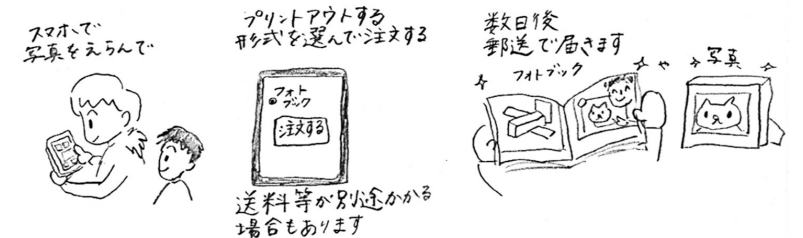 スマホで
写真をえらんで
プリントアウトする
形式を選んで注文する
フォト
ブック
注文する
送料等が別途かかる
場合もあります
数日後
郵送で届きます
フォトブック
や
写真